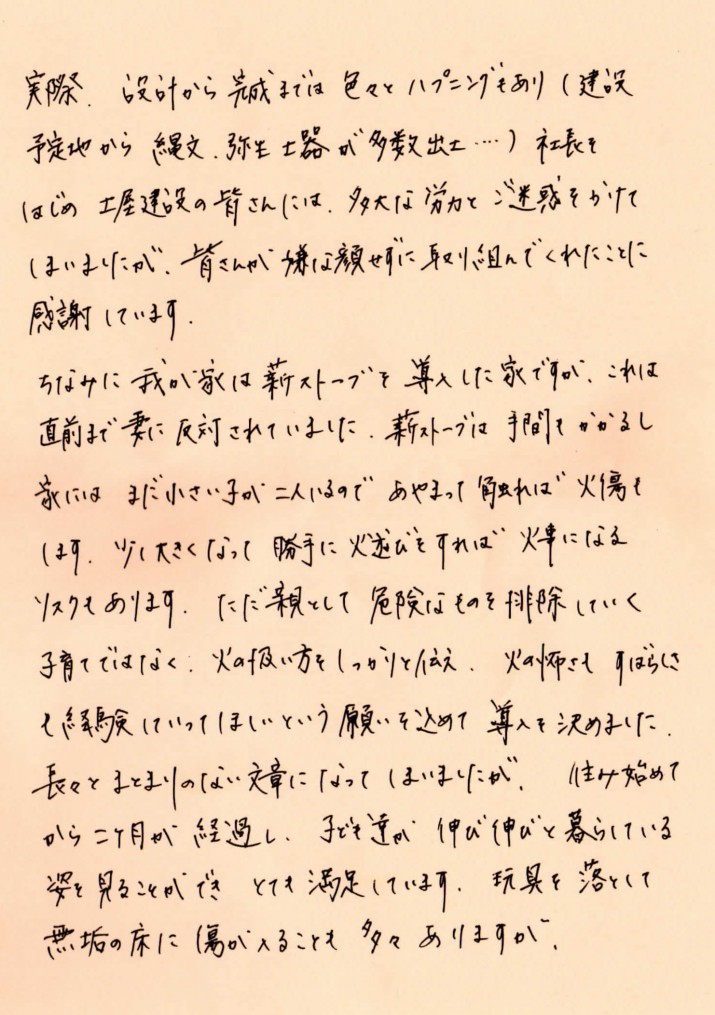 実際、設計から完成までは色々とハプニングもあり(建設
予定地から縄文、弥生土器が多数出土…)社長を
はじめ土屋建設の皆さんには、多大な労力とご迷惑をかけて
しまいましたが、皆さんが嫌な顔せずに取り組んでくれたことに
感謝しています。
ちなみに我が家は薪ストーブを導入した家ですが、これは
直前まで妻に反対されていました。薪ストーブは手間もかかるし
家にはまだ小さい子が二人いるのであやまって触れば火傷も
します。少し大きくなって勝手に火遊びをすれば火事になる
リスクもあります。ただ親として危険なものを排除していく
子育てではなく、火の扱い方をしっかりと伝え、火の怖さもすばらしさ
も経験していってほしいという願いを込めて導入を決めました。
長々とまとまりのない文章になってしまいましたが、住み始めて
から二ヶ月が経過し、子ども達が伸び伸びと暮らしている
姿を見ることができとても満足しています。玩具を落として
無垢の床に傷が入ることも多々ありますが、